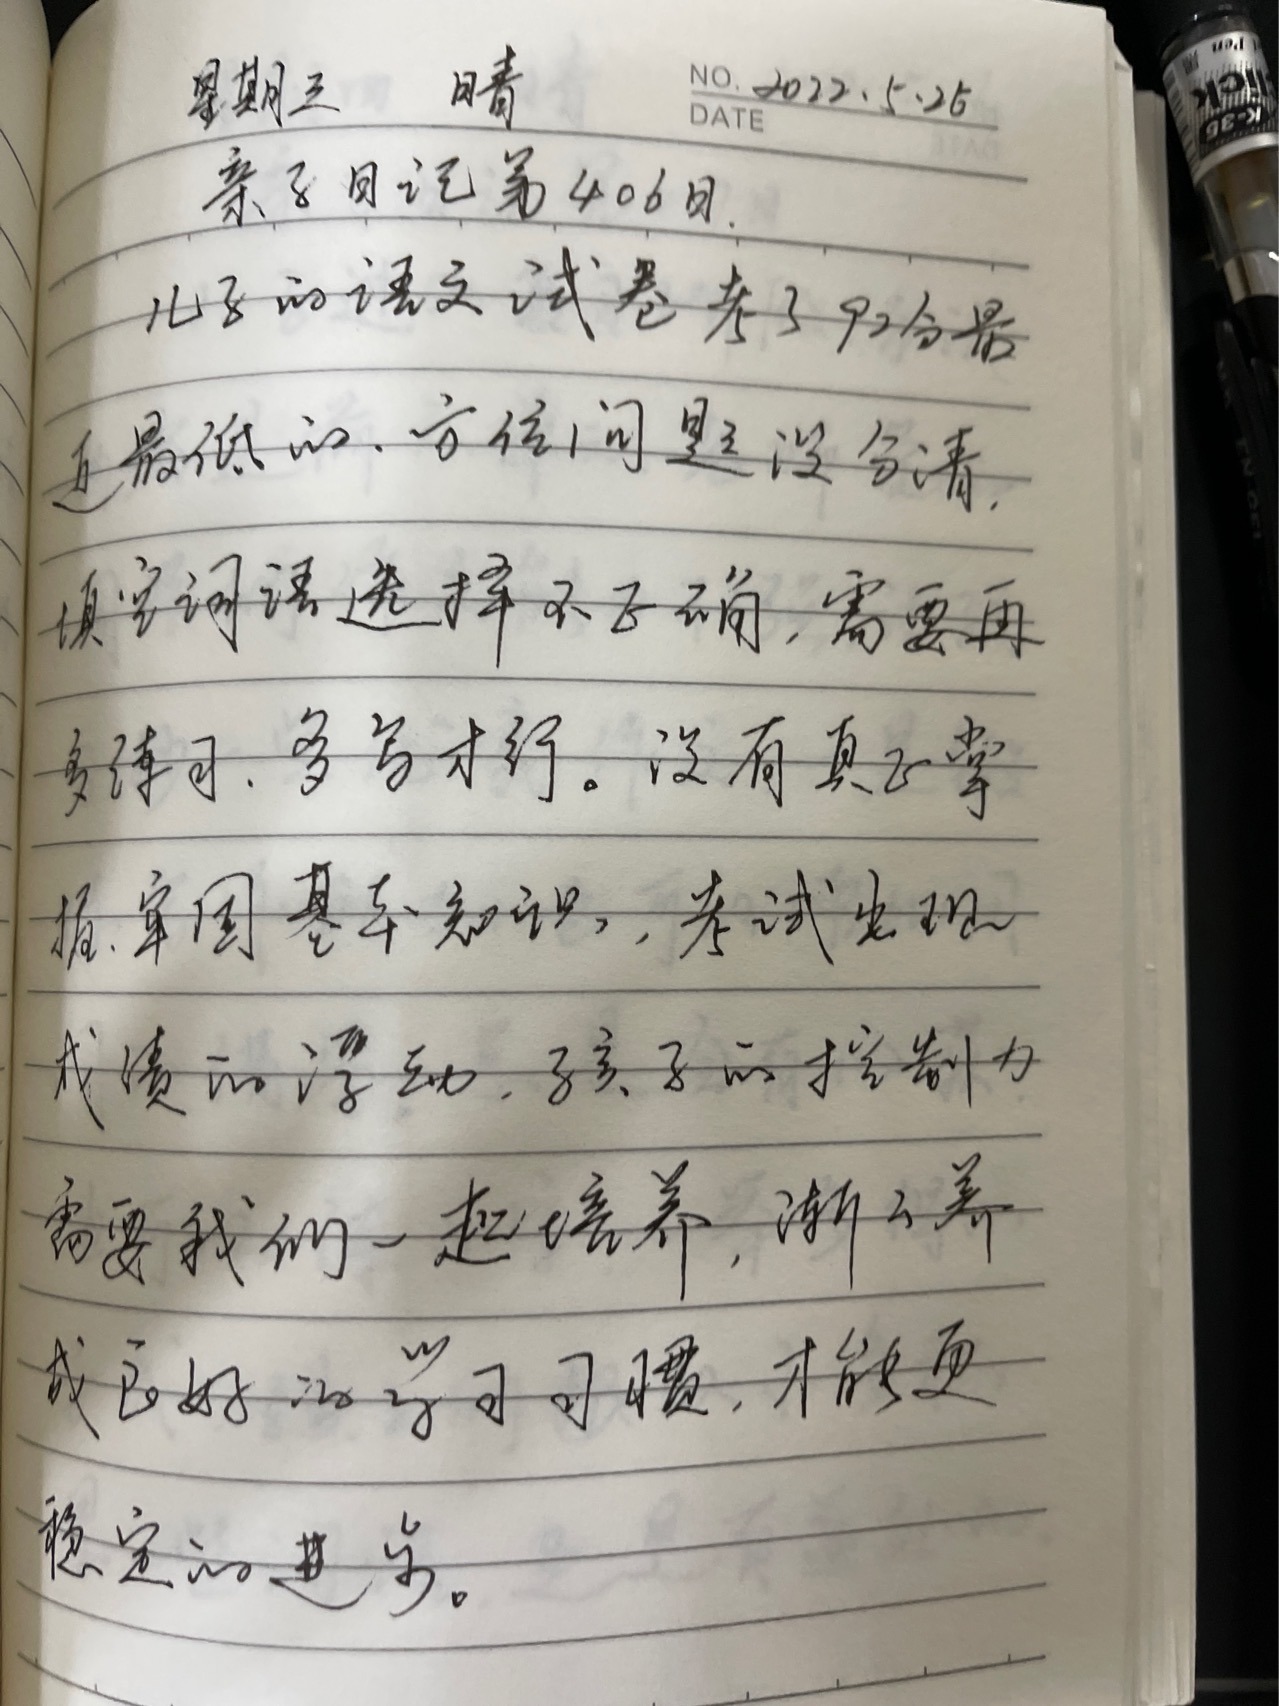 星期三 晴 NO. 2022.5.25
DATE
亲子日记第406日.
儿子的语文试卷考了92分最
近最低的、方位问题没分清,
填空词语选择不正确,需要再
多练习、多写才行。没有真正掌
握、牢固基本知识,考试出现
成绩的浮动,孩子的控制力
需要我们一起培养,渐渐养
成良好的学习习惯,才能更
稳定的进步。
K-35